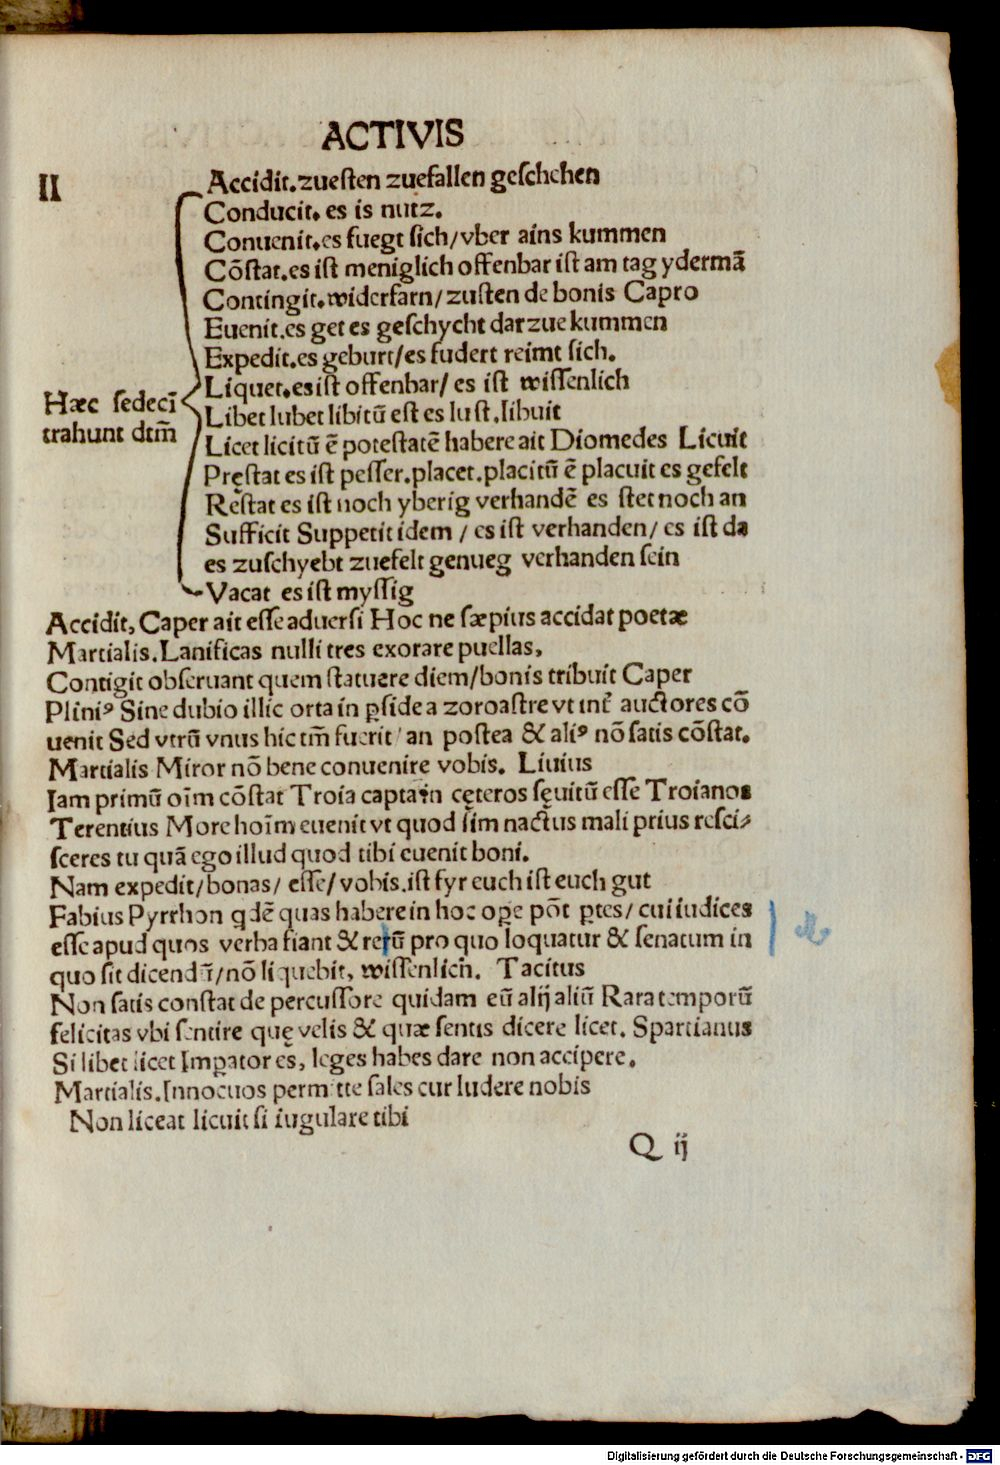 ACTIVIS
II
Accidit. zuesten zuefallen geschehen
Conducit. es is nutz.
Conuenit. es fuegt sich/vber ains kummen
Cōstat. es ist meniglich offenbar ist am tag ydermā
Contingit. widerfarn/zusten de bonis Capro
Euenit. es get es geschycht darzue kummen
Expedit. es geburt/es fudert reimt sich.
Liquet. es ist offenbar/ es ist wissenlich
Libet lubet libitū est es lust. libuit
Licet licitū ē potestatē habere ait Diomedes Licuit
Pręstat es ist pesser. placet. placitū ē placuit es gefelt
Restat es ist noch yberig verhandē es stet noch an
Sufficit Suppetit idem / es ist verhanden/ es ist da
es zuschyebt zuefelt genueg verhanden sein
Vacat es ist myssig
Hæc sedecī
trahunt dtm̄
Accidit, Caper ait esse aduersi Hoc ne sæpius accidat poetæ
Martialis. Lanificas nulli tres exorare puellas,
Contigit obseruant quem statuere diem/bonis tribuit Caper
Pliniꝰ Sine dubio illic orta in ꝑside a zoroastre vt int̄ auctores cō
uenit Sed vtrū vnus hic tm̄ fuerit/ an postea & aliꝰ nō satis cōstat.
Martialis Miror nō bene conuenire vobis. Liuius
Iam primū oīm cōstat Troia capta in cęteros sęuitū esse Troianos
Terentius More hoīm euenit vt quod sim nactus mali prius resci⸗
sceres tu quā ego illud quod tibi euenit boni.
Nam expedit/bonas/ esse/ vobis. ist fyr euch ist euch gut
Fabius Pyrrhon qdē quas habere in hoc oꝑe pōt ꝑtes/ cui iudices
esse apud quos verba fiant & reū pro quo loquatur & senatum in
quo sit dicendū/nō liquebit, wissenlich. Tacitus
Non satis constat de percussore quidam eū alij aliū Rara temporū
felicitas vbi sentire quę velis & quæ sentis dicere licet. Spartianus
Si libet licet Imꝑator es, leges habes dare non accipere.
Martialis. Innocuos permitte sales cur ludere nobis
Non liceat licuit si iugulare tibi
Q ij
Digitalisierung gefördert durch die Deutsche Forschungsgemeinschaft - DFG